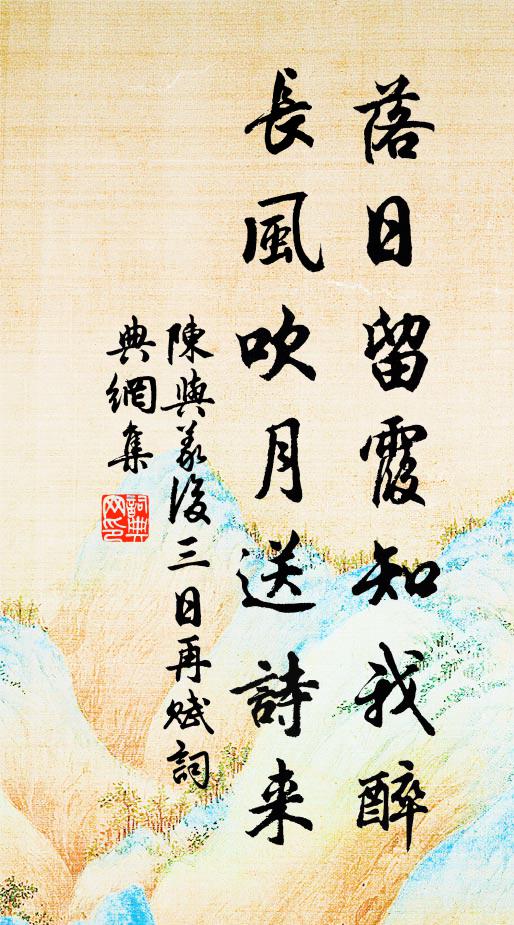 落日留霞知我醉
長風吹月送詩来
陳與義後三日再賦詞
典網集
詞典网印